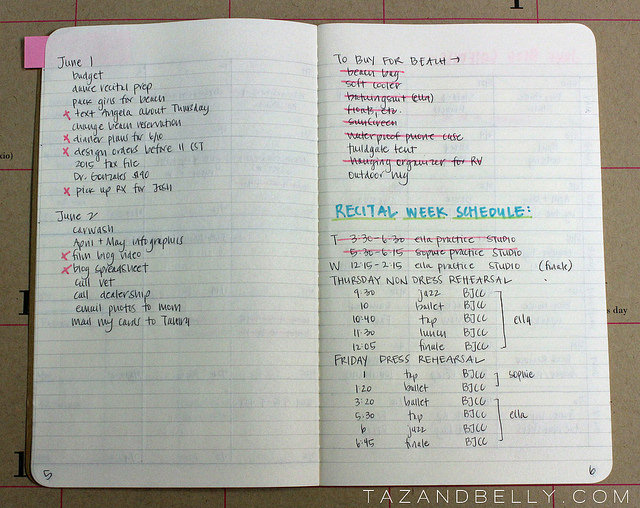 June 1
budget
dance recital prep
pack girls for beach
x text Angela about Thursday
change beach reservation
x dinner plans for 6/10
x design orders before 11 CST
2015 tax file
Dr. Gonzales $90
x pick up RX for Josh
June 2
carwash
April + May infographics
x film blog video
x blog spreadsheet
call vet
call dealership
email photos to mom
mail my cards to Tamra
5
TO BUY FOR BEACH →
beach bag
soft cooler
bathingsuit (ella)
floats, etc.
sunscreen
water proof phone case
tailgate tent
hanging organizer for RV
outdoor rug
RECITAL WEEK SCHEDULE:
T 3:30-6:30 ella practice STUDIO
5:30-6:15 sophie practice STUDIO
W 12:15-2:15 ella practice STUDIO (finale)
THURSDAY NON DRESS REHEARSAL
9:30 jazz BJCC
10 ballet BJCC
10:40 tap BJCC ella
11:30 lunch BJCC
12:05 finale BJCC
FRIDAY DRESS REHEARSAL
1 tap BJCC sophie
1:20 ballet BJCC
3:20 ballet BJCC
5:30 tap BJCC ella
6 jazz BJCC
6:45 finale BJCC
6
s day
TAZANDBELLY.COM